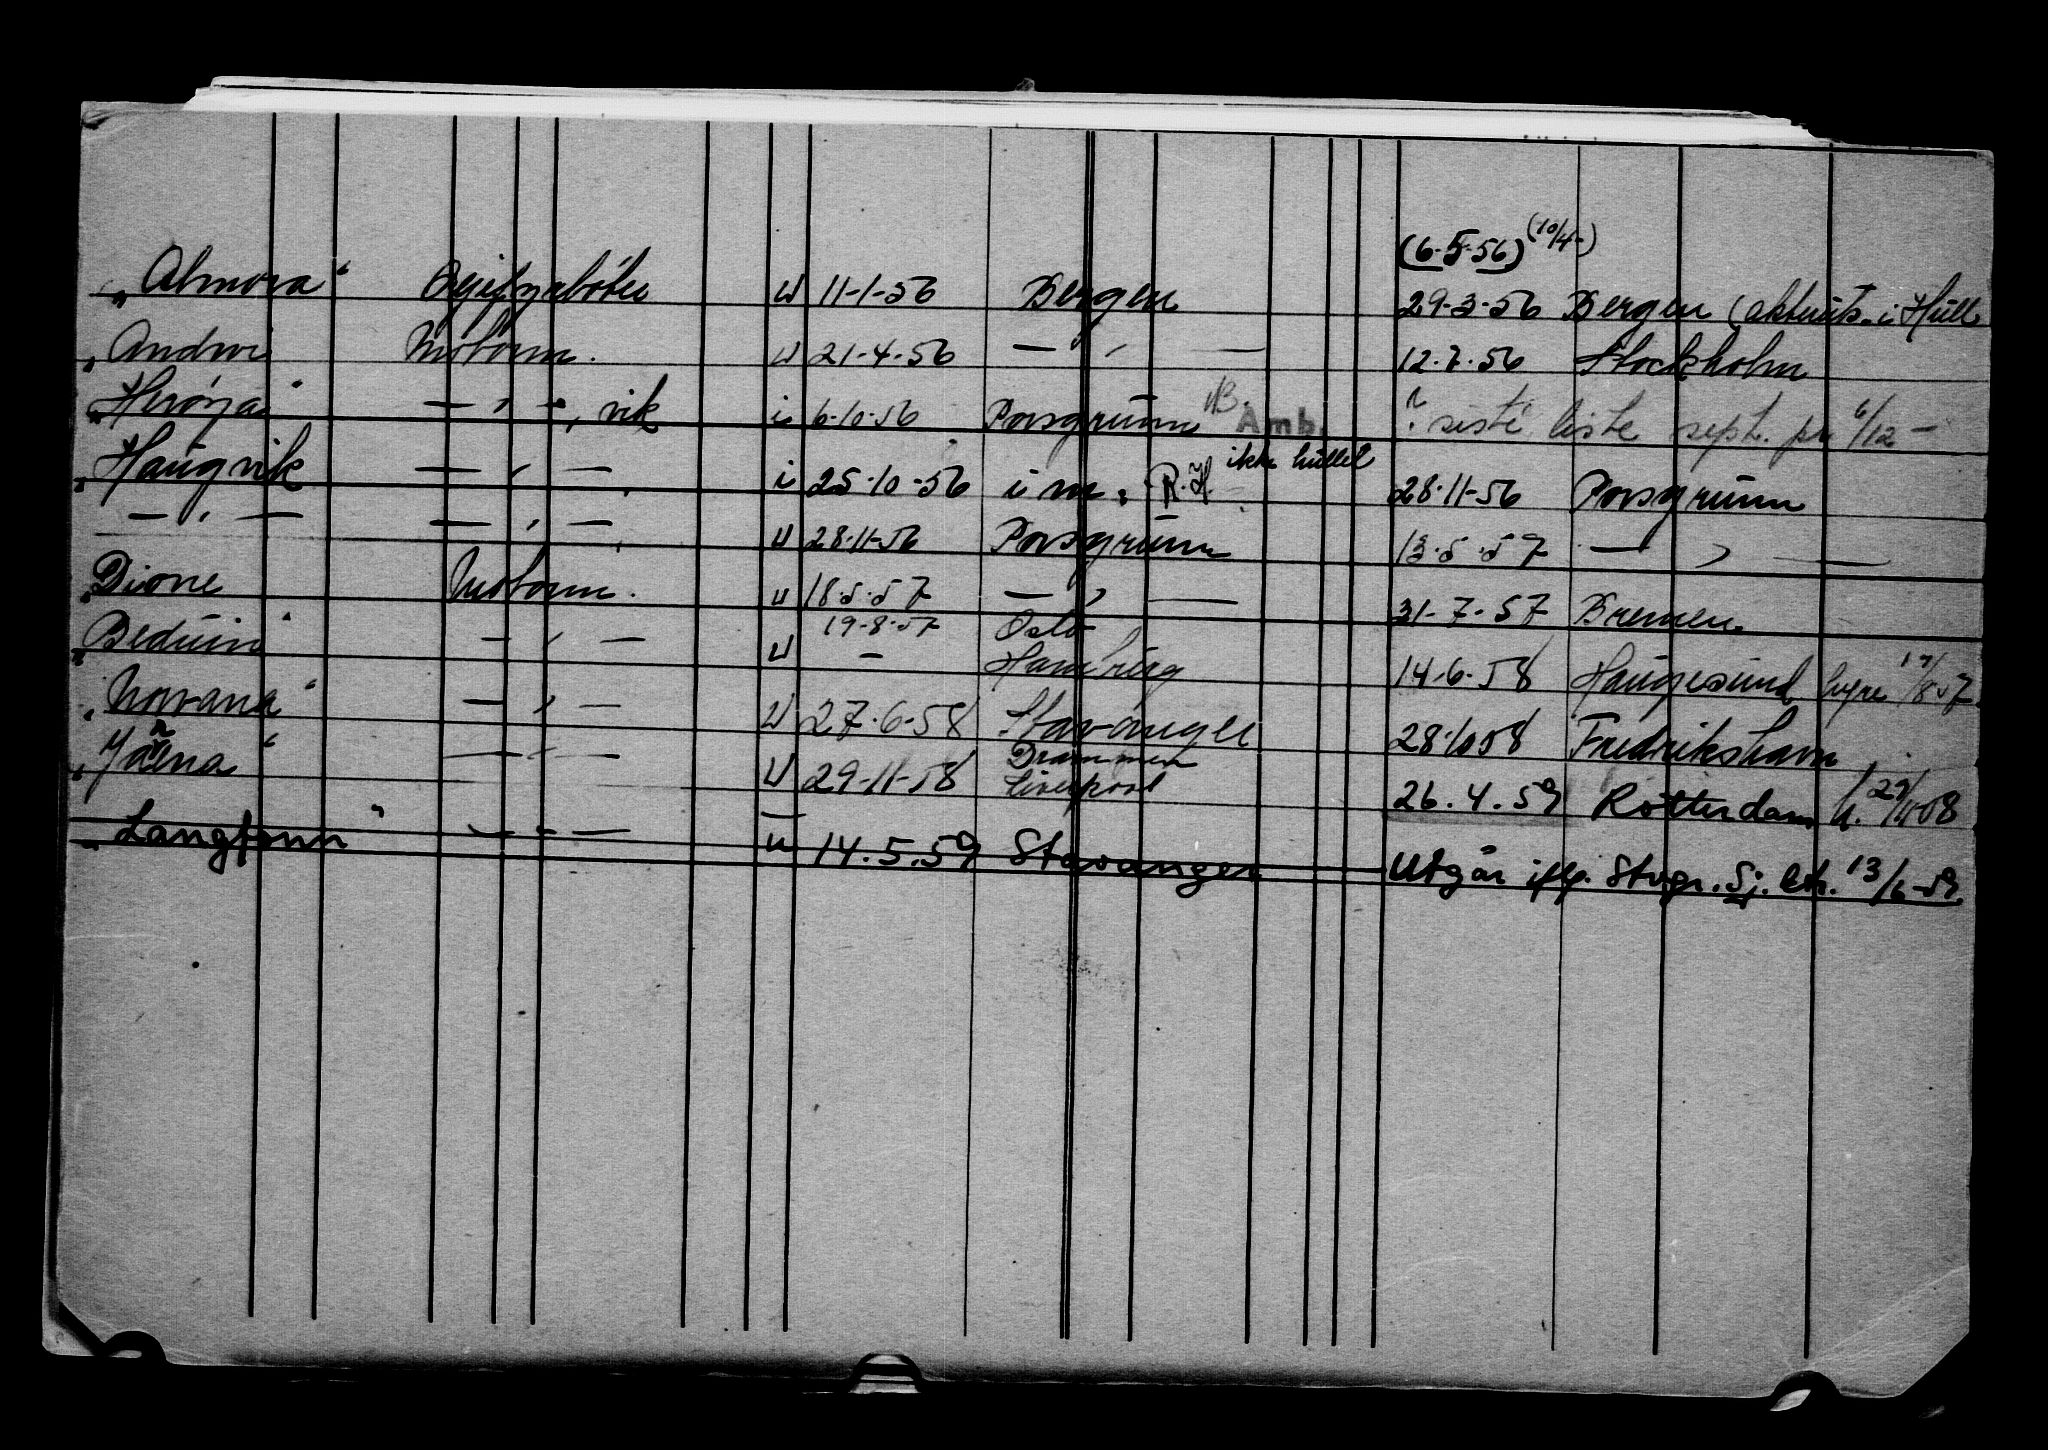 (6-5-56) (10/4-)
"Almora" u 11-1-56 Bergen 29-3-56 Bergen ( i Hull
"Andrea Motorm. u 21-4-56 — " — 12.7.56 Stockholm
"Herøya" — " —, vik i 6-10-56 Porsgrunn NB. Amb. ? siste liste sept. pr 6/12 -
"Haugvik — " — i 25-10-56 i m. R.H. ikke hullet 28-11-56 Porsgrunn
— " — — " — u 28-11-56 Porsgrunn 13.5.57 — " —
"Dione Motorm. u 18.5.57 — " — 31-7-57 Bremen
19-8-57 Oslo
"Beduin" — " — u - Hamburg 14-6-58 Haugesund hyre 19/8 57
"Norvana" — " — u 27-6-58 Stavanger 28-10 58 Fredrikshavn
Drammen
— " — u 29-11-58 Liverpool 26.4.59 Rotterdam h. 29/11 58
"Langfonn" — " — u 14.5.59 Stavanger Utgår iflg. Stvgr. Sj. ktr. 13/6-59